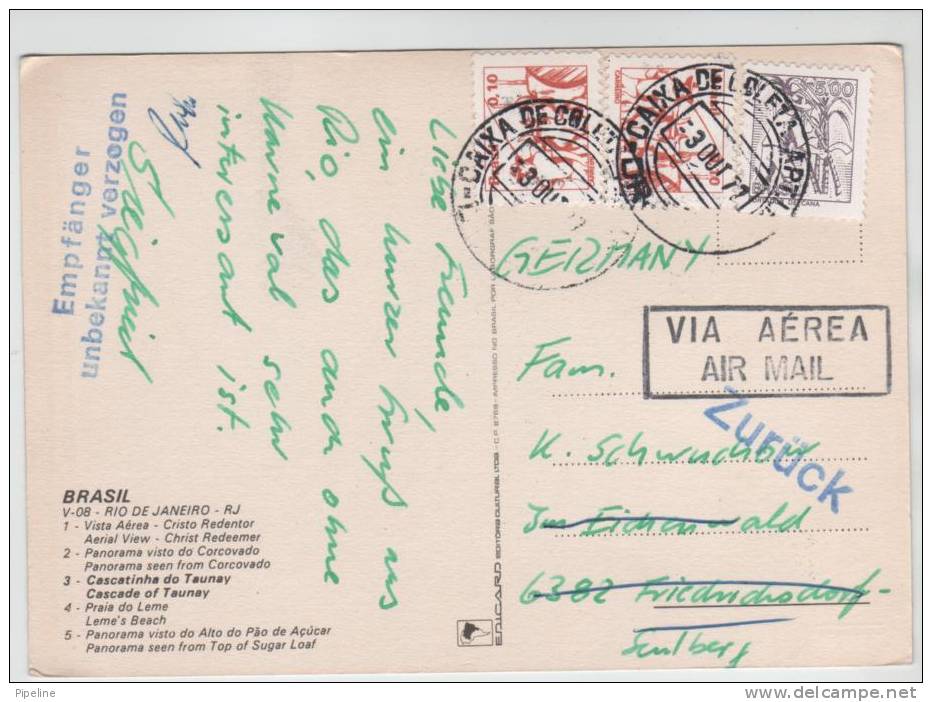 Liebe Freunde,
ein kurzer Gruß aus
Rio, das auch ohne
Karneval sehr
interessant ist.
Empfänger
unbekannt verzogen
BRASIL
V-08 - RIO DE JANEIRO - RJ
1 - Vista Aérea - Cristo Redentor
Aerial View - Christ Redeemer
2 - Panorama visto do Corcovado
Panorama seen from Corcovado
3 - Cascatinha do Taunay
Cascade of Taunay
4 - Praia do Leme
Leme's Beach
5 - Panorama visto do Alto do Pão de Açúcar
Panorama seen from Top of Sugar Loaf
EDICARD EDITORA CULTURAL LTDA - C.P. 8768 - IMPRESSO NO BRASIL POR
0,10
5,00
CAIXA DE COLETA
-3 OUT
CAIXA DE COLETA
-3 OUT 77
GERMANY
VIA AÉREA
AIR MAIL
Fam.
K.
Zurück
Im Eichenwald
6382 Friedrichsdorf-
Seulberg
Pipeline
www.delcampe.net